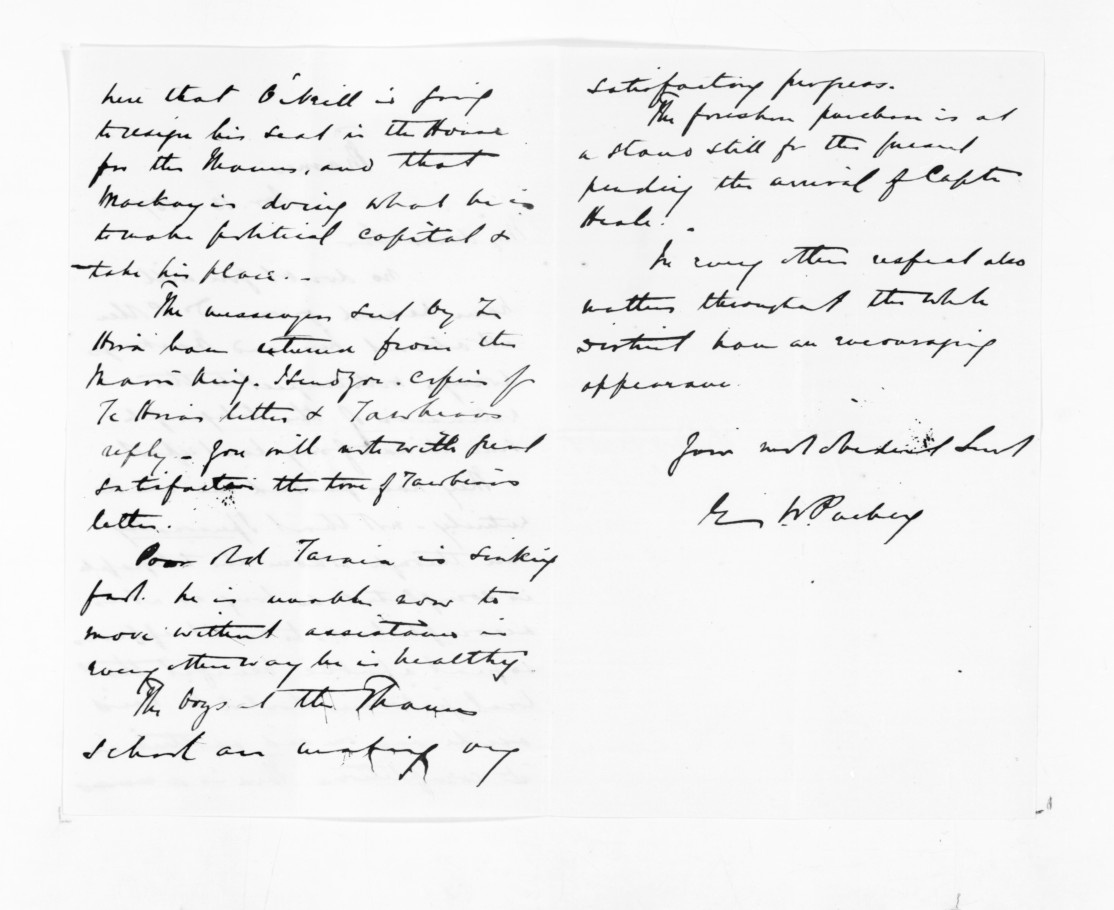 here that O'Neill is going
to resign his seat in the House
for the Thames, and that
Mackay is doing what he is
to make political capital &
take his place.
The messengers sent by Te
Hira have returned from the
Maori King. I send you copies of
Te Hira's letter & Tawhiao's
reply. You will note with great
satisfaction the tone of Tawhiao's
letter.
Poor old Taraia is sinking
fast. he is unable now to
move without assistance in
every other way he is healthy.
The boys at the Thames
School are making very
satisfactory progress.
The foreshore purchase is at
a stand still for the present
pending the arrival of Captn
Heale.
In every other respect also
matters throughout the whole
District have an encouraging
appearance.
Your most obedient Servt
E W Puckey